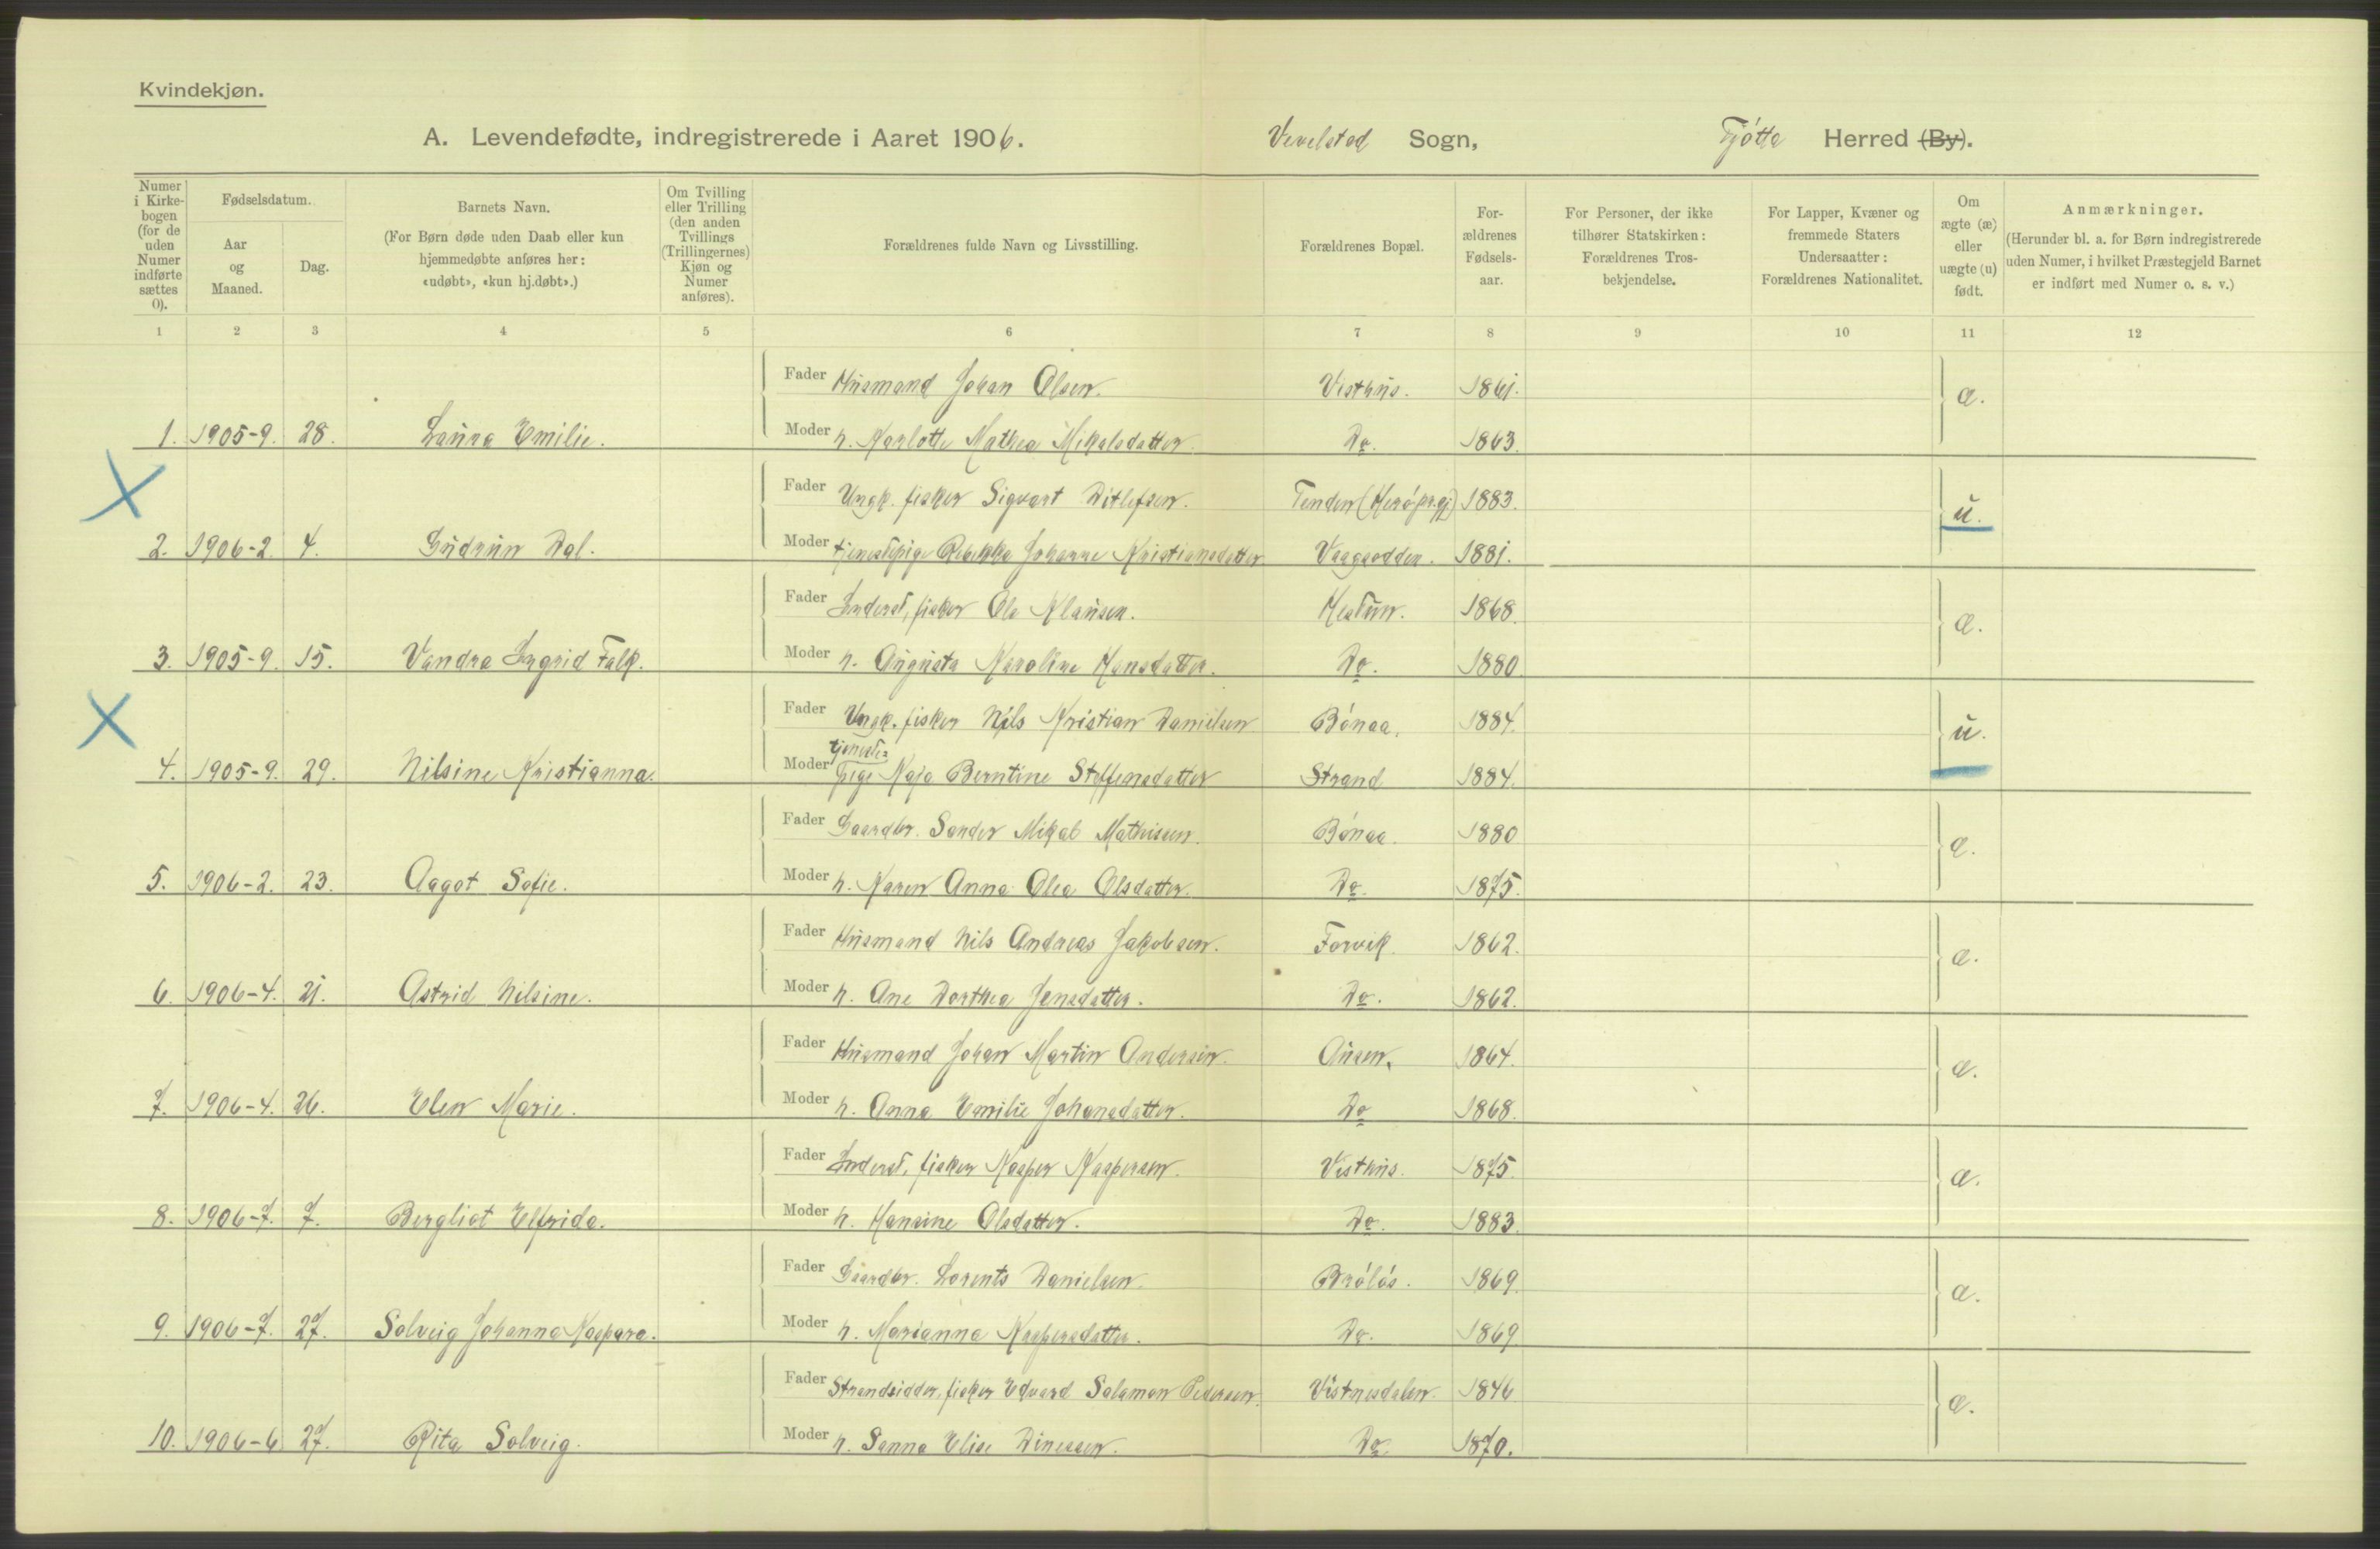 Kvindekjøn.
A. Levendefødte, indregistrerede i Aaret 1906. Vevelstad Sogn, Tjøtta Herred (By).
Numer i Kirkebogen (for de uden Numer indførte sættes 0).
Fødselsdatum.
Aar og Maaned.
Dag.
Barnets Navn.
(For Børn døde uden Daab eller kun hjemmedøbte anføres her: «udøbt», «kun hj.døbt».)
Om Tvilling eller Trilling (den anden Tvillings (Trillingernes) Kjøn og Numer anføres).
Forældrenes fulde Navn og Livsstilling.
Forældrenes Bopæl.
Forældrenes Fødselsaar.
For Personer, der ikke tilhører Statskirken: Forældrenes Trosbekjendelse.
For Lapper, Kvæner og fremmede Staters Undersaatter: Forældrenes Nationalitet.
Om ægte (æ) eller uægte (u) født.
Anmærkninger.
(Herunder bl. a. for Børn indregistrerede uden Numer, i hvilket Præstegjeld Barnet er indført med Numer o. s. v.)
1 2 3 4 5 6 7 8 9 10 11 12
Fader Husmand Johan Olsen. Visthus. 1861. æ.
1. 1905-9. 28. Laura Emilie. Moder h. Karlotte Mathea Mikalsdatter. Do. 1863.
Fader Ungk. fisker Sigvart Ditlefsen. Tenden (Herø prgj) 1883. u.
2. 1906-2. 4. Gudrun Dal. Moder tjenestepige Rebekka Johanne Kristiansdatter Vaagsodden. 1881.
Fader Inderst, fisker Ole Klausen. Hestun. 1868. æ.
3. 1905-9. 15. Vandra Ingrid Falk. Moder h. Augusta Karoline Hansdatter. Do. 1880
Fader Ungk. fisker Nils Kristian Danielsen Bønaa. 1884. u.
4. 1905-9. 29. Nilsine Kristianna. Moder tjeneste= pige Kaja Berntine Steffensdatter Strand 1884.
Fader Gaardbr. Sander Mikal Mathisen. Bønaa. 1880 æ.
5. 1906-2. 23. Aagot Sofie. Moder h. Karen Anna Olea Olsdatter. Do. 1875.
Fader Husmand Nils Andreas Jakobsen. Forvik 1862. æ.
6. 1906-4. 21. Astrid Nilsine. Moder h. Ane Dorthea Jensdatter. Do. 1862.
Fader Husmand Johan Martin Andersen. Ausen. 1864. æ.
7. 1906-4. 26. Elen Marie. Moder h. Anna Emilie Johansdatter. Do 1868.
Fader Inderst, fisker Kasper Kaspersen. Visthus. 1875. æ.
8. 1906-7. 7. Bergliot Elfrida. Moder h. Hansine Olsdatter. Do. 1883.
Fader Gaardbr. Lorents Danielsen. Brøløs. 1869. æ.
9. 1906-7. 27. Solveig Johanna Kaspara. Moder h. Marianna Kaspersdatter. Do. 1869
Fader Strandsidder, fisker Edvard Salamon Pedersen. Vistnesdalen. 1846 æ.
10. 1906-6 27. Rita Solveig. Moder h. Sanna Elise Dinessen. Do. 1870.